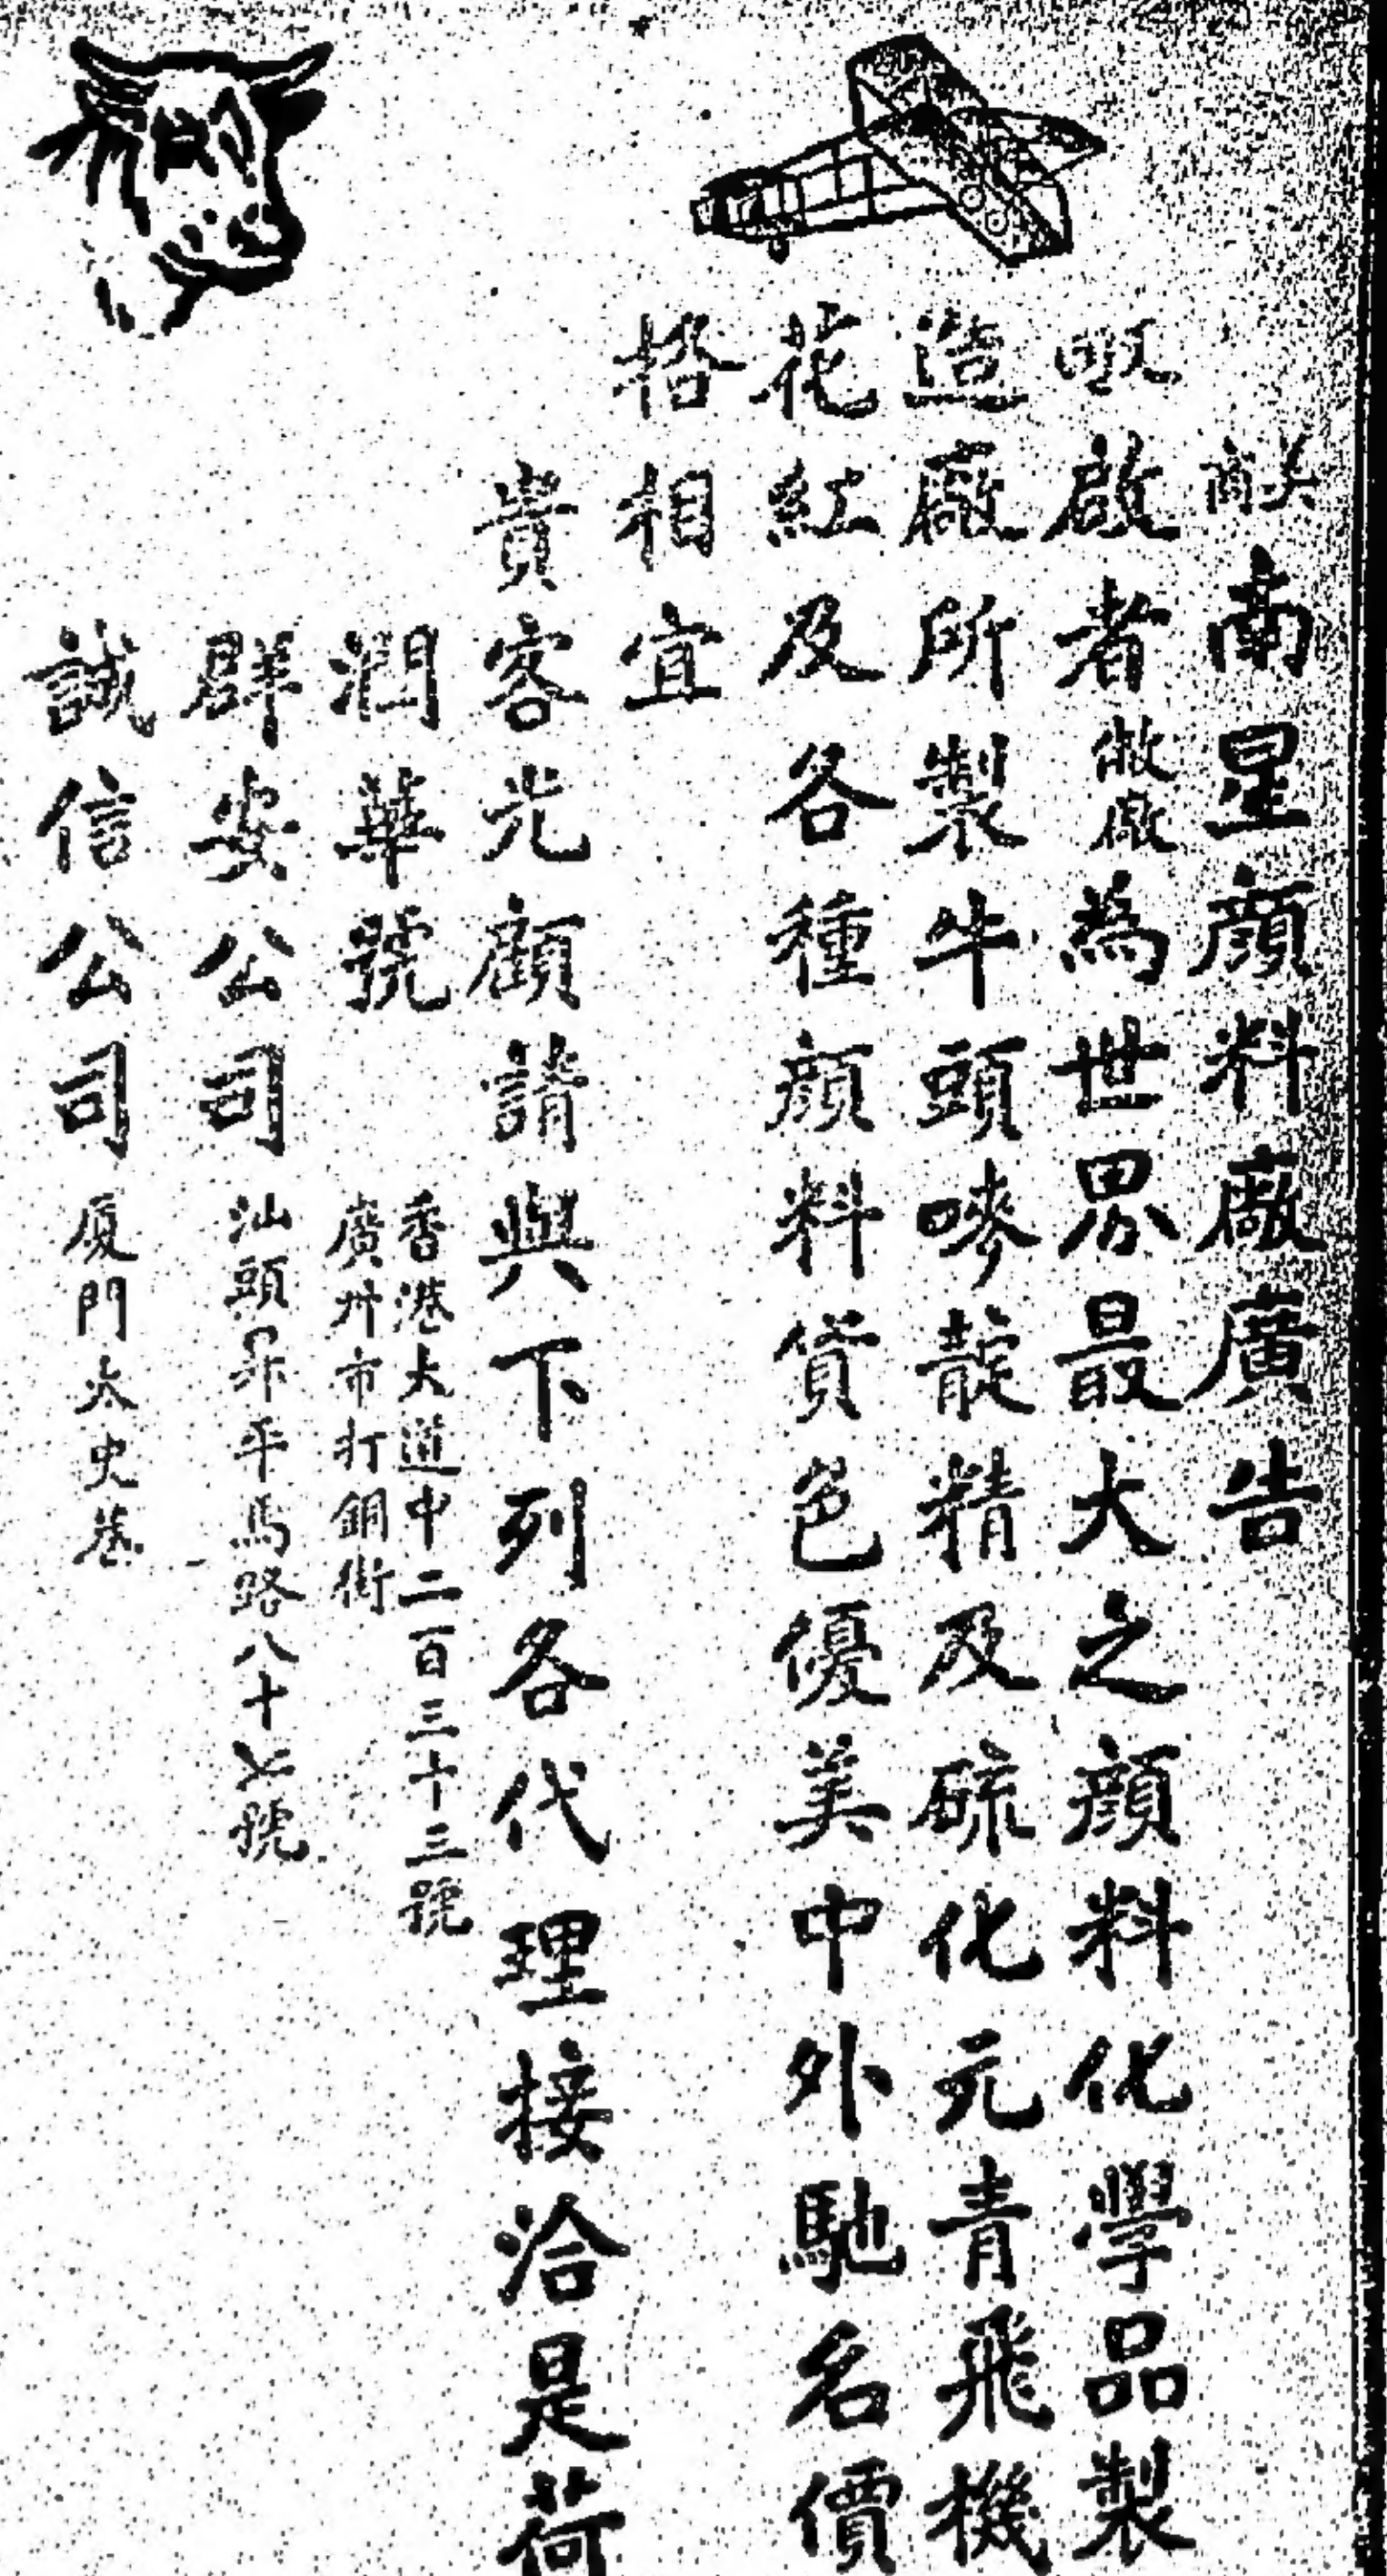 美商南星顏料廠廣告
啟者敝廠為世界最大之顏料化學品製
造廠所製牛頭嘜靛精及硫化元青飛機
花紅及各種顏料貨色優美中外馳名價
格相宜
貴客光顧請與下列各代理接洽是荷
潤華號 香港大道中二百三十三號
廣州市打銅街
群安公司 汕頭昇平馬路八十七號
誠信公司 廈門太史巷